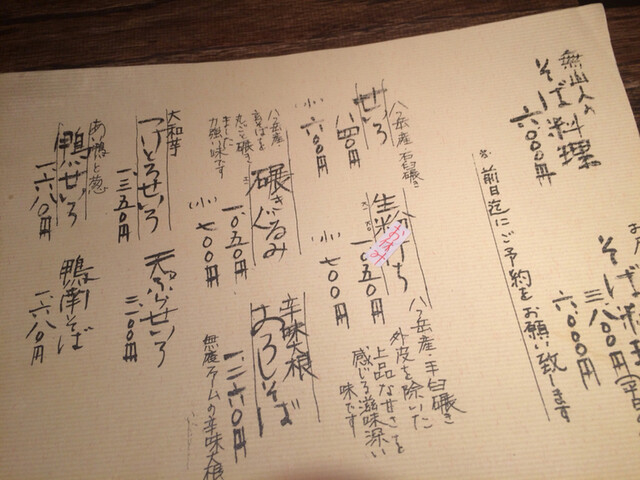 無出人の
そば料理
六〇〇〇円
三八〇〇円
六〇〇〇円
前日迄にご予約をお願い致します
八ヶ岳産 石臼碾き
せいろ
八四〇円
小 六〇〇円
生粉
お休み
一〇五〇円
小 七〇〇円
八ヶ岳産・手臼碾き
外皮を除いた
上品な甘さを
感じる滋味深い
味です
八ヶ岳産
玄そばを
丸ごと碾き
ました
力強い味です
碾きぐるみ
一〇五〇円
小 七〇〇円
辛味大根
おろしそば
一二六〇円
無農ファームの辛味大根
大和芋
つけとろせいろ
一三五〇円
天ぷらせいろ
二一〇〇円
あい鴨と葱
鴨せいろ
一六八〇円
鴨南そば
一六八〇円